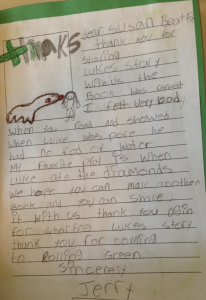 thanks
dear Susan Beatty
thank you for
sharing
Lukes story
with us the
Book was
I felt very bad
When you read and showed
when Luke was
had no food or water
My favorite part is when
Luke ate the diamonds
We hope you can make another
Book and you can share
it with us thank you agin
for sharing Lukes story
thank you for coming
to Rolling Green
Sincerely
Jerry